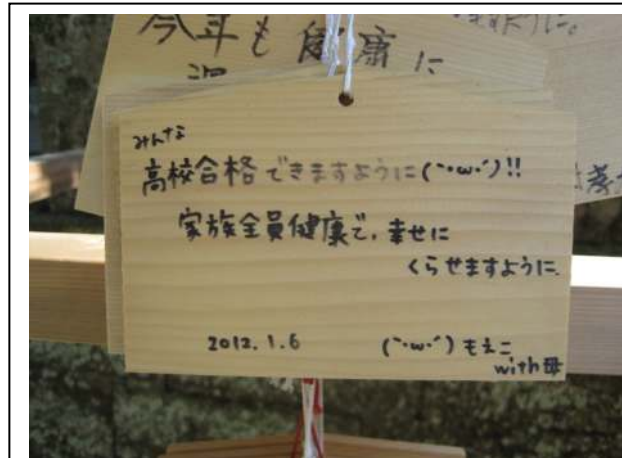 今年も健康に
みんな
高校合格できますように(`・ω・´)!!
家族全員健康で、幸せに
くらせますように.
2012.1.6 (`・ω・´)もえこ
with母